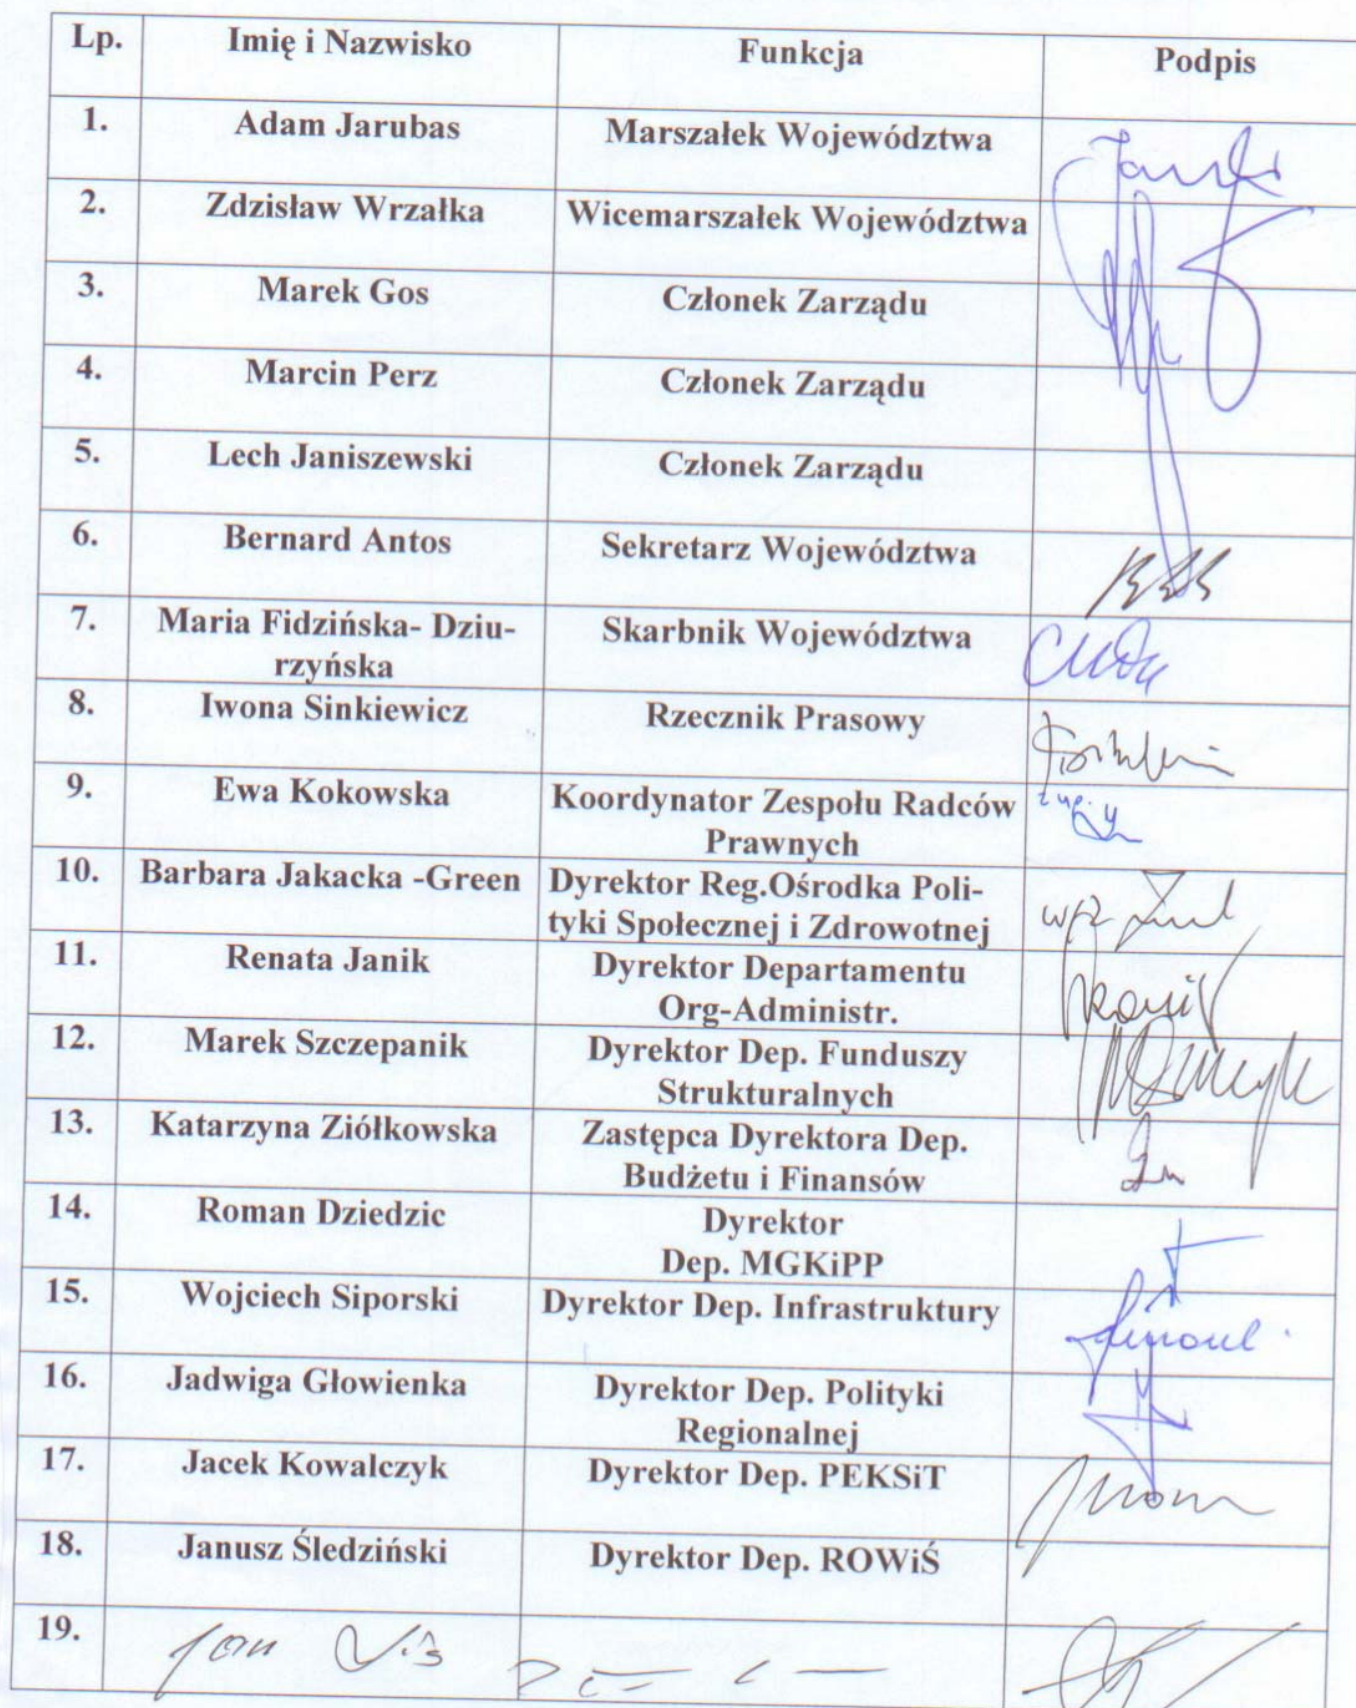 Lp. Imię i Nazwisko Funkcja Podpis
1. Adam Jarubas Marszałek Województwa
2. Zdzisław Wrzałka Wicemarszałek Województwa
3. Marek Gos Członek Zarządu
4. Marcin Perz Członek Zarządu
5. Lech Janiszewski Członek Zarządu
6. Bernard Antos Sekretarz Województwa
7. Maria Fidzińska- Dziu- Skarbnik Województwa
rzyńska
8. Iwona Sinkiewicz Rzecznik Prasowy
9. Ewa Kokowska Koordynator Zespołu Radców
Prawnych
10. Barbara Jakacka -Green Dyrektor Reg.Ośrodka Poli-
tyki Społecznej i Zdrowotnej
11. Renata Janik Dyrektor Departamentu
Org-Administr.
12. Marek Szczepanik Dyrektor Dep. Funduszy
Strukturalnych
13. Katarzyna Ziółkowska Zastępca Dyrektora Dep.
Budżetu i Finansów
14. Roman Dziedzic Dyrektor
Dep. MGKiPP
15. Wojciech Siporski Dyrektor Dep. Infrastruktury
16. Jadwiga Głowienka Dyrektor Dep. Polityki
Regionalnej
17. Jacek Kowalczyk Dyrektor Dep. PEKSiT
18. Janusz Śledziński Dyrektor Dep. ROWiŚ
19. Jan